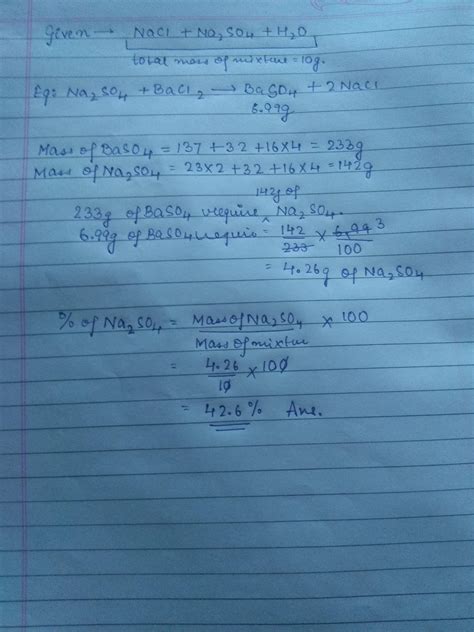 Given → NaCl + Na₂SO₄ + H₂O
total mass of mixture = 10g.
Eq: Na₂SO₄ + BaCl₂ → BaSO₄ + 2NaCl
6.99g
Mass of BaSO₄ = 137 + 32 + 16×4 = 233g
Mass of Na₂SO₄ = 23×2 + 32 + 16×4 = 142g
142g of
233g of BaSO₄ require ^ Na₂SO₄.
6.99g of BaSO₄ require = 142/233 × 6.99 3/100
= 4.26g of Na₂SO₄
% of Na₂SO₄ = Mass of Na₂SO₄/Mass of mixture × 100
= 4.26/10 × 100
= 42.6% Ans.